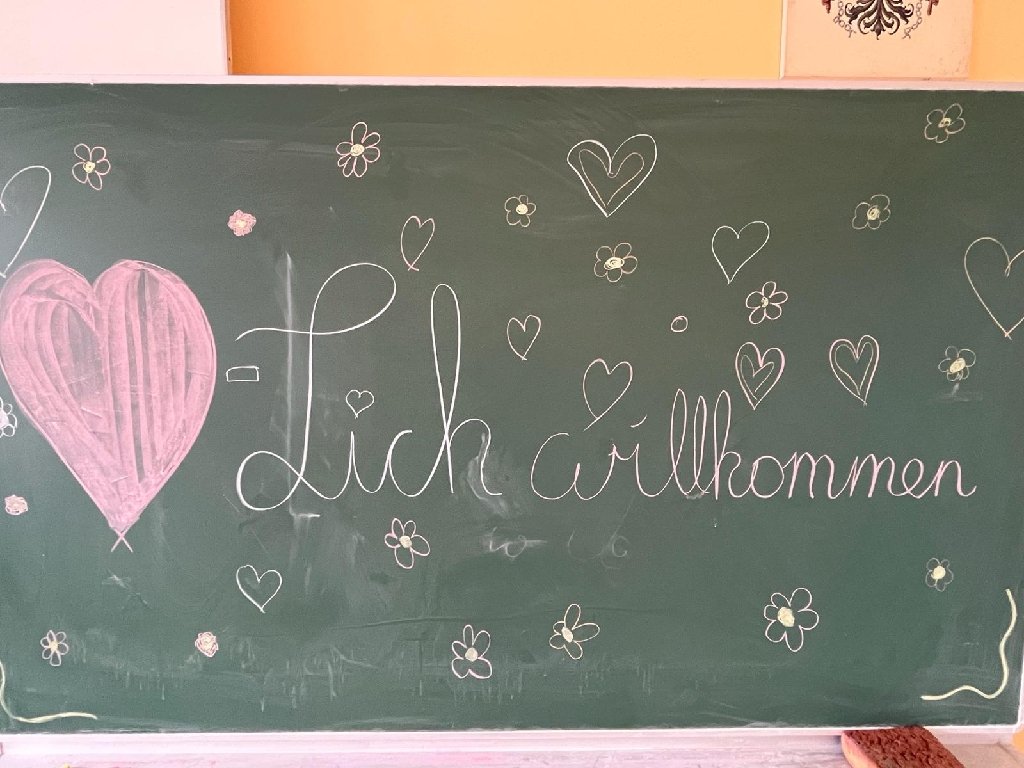 -Lich willkommen